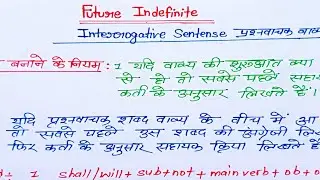 Future Indefinite
Interrogative Sentence प्रश्नवाचक वाक्य
बनाने के नियम: 1 यदि वाक्य की शुरुआत क्या
से हो तो सबसे पहले सहा
कर्ता के अनुसार लिखते हैं।
यदि प्रश्नवाचक शब्द वाक्य के बीच में आ
तो सबसे पहले उस शब्द की अंग्रेजी लि
फिर कर्ता के अनुसार सहायक क्रिया लिखते हैं
1 shall/will + sub + not + main verb + ob + o